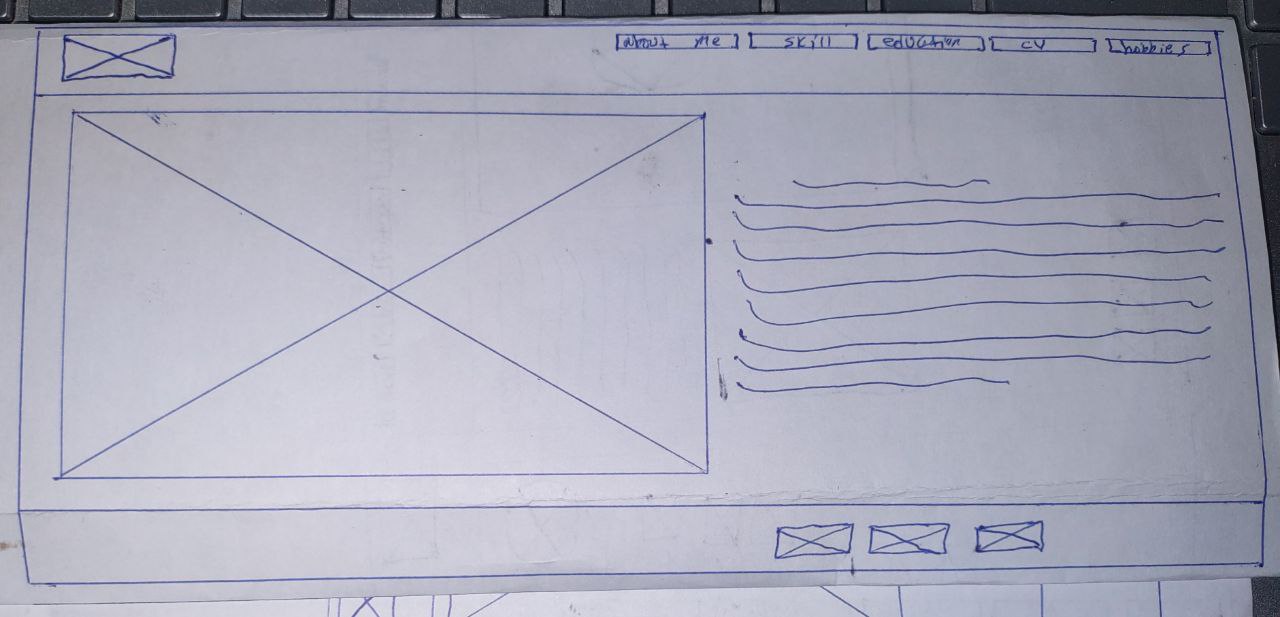 about me skill education cv hobbies